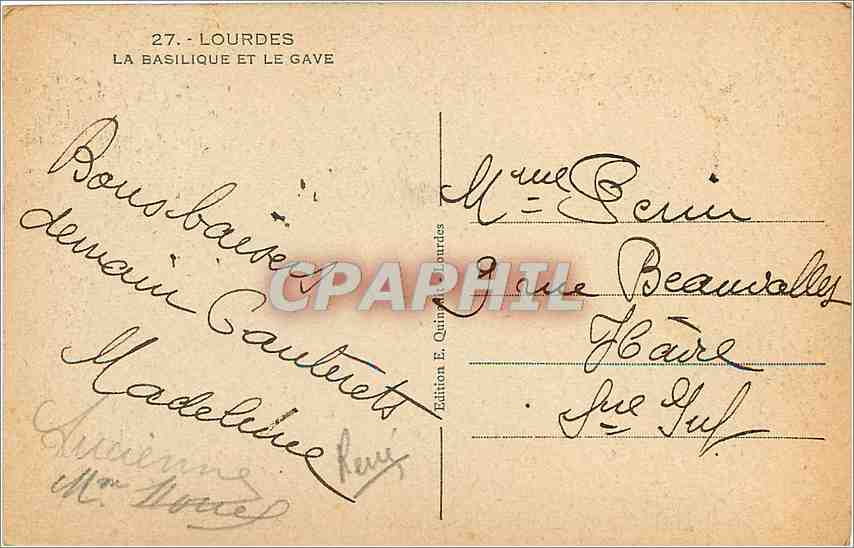 27. - LOURDES
LA BASILIQUE ET LE GAVE
Bons baisers
demain Cauterets
Madeleine
Lucienne
René
Mme
Edition E. Lourdes
CPAPHIL
Mme Perin
9 rue Beauvallet
Hâvre
Sne Inf